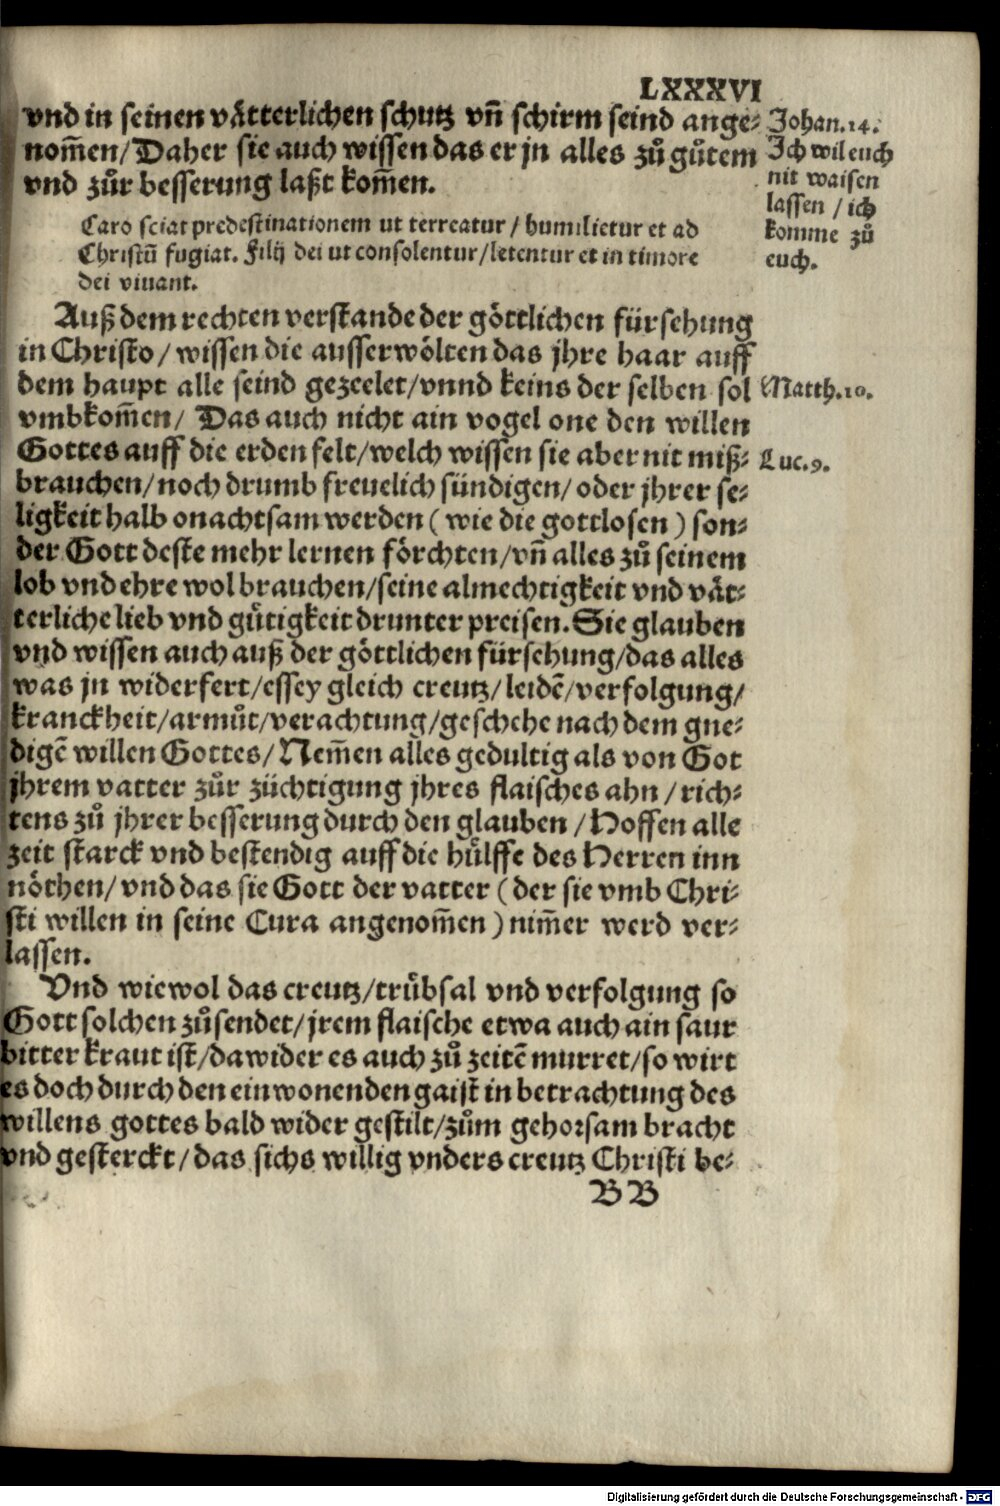 LXXXVI
vnd in seinen våtterlichen schutz vñ schirm seind ange-
nom̃en/Daher sie auch wissen das er jn alles zů gůtem
vnd zůr besserung laßt kom̃en.
Johan.14.
Ich wil euch
nit waisen
lassen / ich
komme zů
euch.
Caro sciat predestinationem ut terreatur / humilietur et ad
Christū fugiat. Filij dei ut consolentur/letentur et in timore
dei viuant.
Auß dem rechten verstande der göttlichen fürsehung
in Christo/ wissen die ausserwölten das jhre haar auff
dem haupt alle seind gezeelet/vnnd keins der selben sol
Matth.10.
vmbkom̃en/ Das auch nicht ain vogel one den willen
Gottes auff die erden felt/welch wissen sie aber nit miß-
Luc.9.
brauchen/noch drumb freuelich sündigen/ oder jhrer se-
ligkeit halb onachtsam werden ( wie die gottlosen ) son-
der Gott deste mehr lernen förchten/vñ alles zů seinem
lob vnd ehre wol brauchen/seine almechtigkeit vnd våt-
terliche lieb vnd gůtigkeit drunter preisen. Sie glauben
vnd wissen auch auß der göttlichen fürsehung/das alles
was jn widerfert/essey gleich creutz/leidē/verfolgung/
kranckheit/armůt/verachtung/geschehe nach dem gne-
digē willen Gottes/ Nem̃en alles gedultig als von Got
jhrem vatter zůr züchtigung jhres flaisches ahn / rich-
tens zů jhrer besserung durch den glauben / Hoffen alle
zeit starck vnd bestendig auff die hůlffe des Herren inn
nöthen/ vnd das sie Gott der vatter ( der sie vmb Chri-
sti willen in seine Cura angenom̃en ) nim̃er werd ver-
lassen.
Vnd wiewol das creutz/trůbsal vnd verfolgung so
Gott solchen zůsendet/jrem flaische etwa auch ain saur
bitter kraut ist/dawider es auch zů zeitē murret/so wirt
es doch durch den einwonenden gaist in betrachtung des
willens gottes bald wider gestilt/zům gehorsam bracht
vnd gesterckt/das sichs willig vnders creutz Christi be-
BB
Digitalisierung gefördert durch die Deutsche Forschungsgemeinschaft - DFG